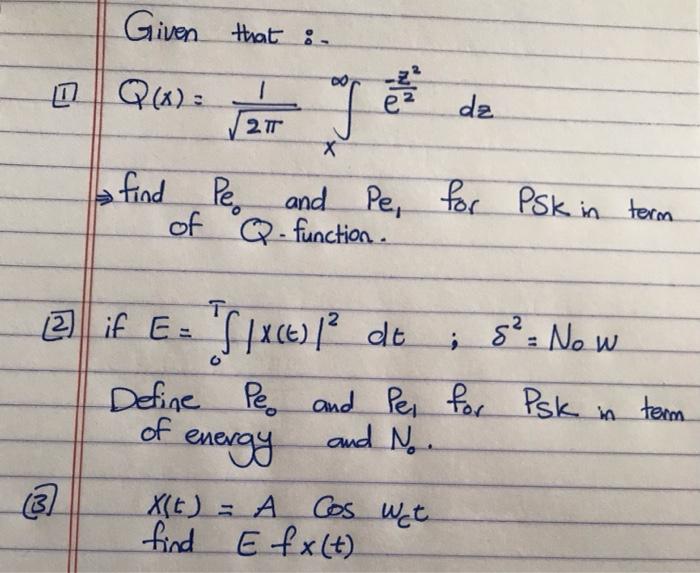 Given that :-
[1] Q(x) = 1/√2π ∫ₓ^∞ e^(-z²/2) dz
→ find Pe₀ and Pe₁ for PSK in term
of Q-function.
[2] if E = ∫₀ᵀ |X(t)|² dt ; δ² = No W
Define Pe₀ and Pe₁ for PSK in term
of energy and N₀.
(3) X(t) = A Cos Wct
find E f x(t)